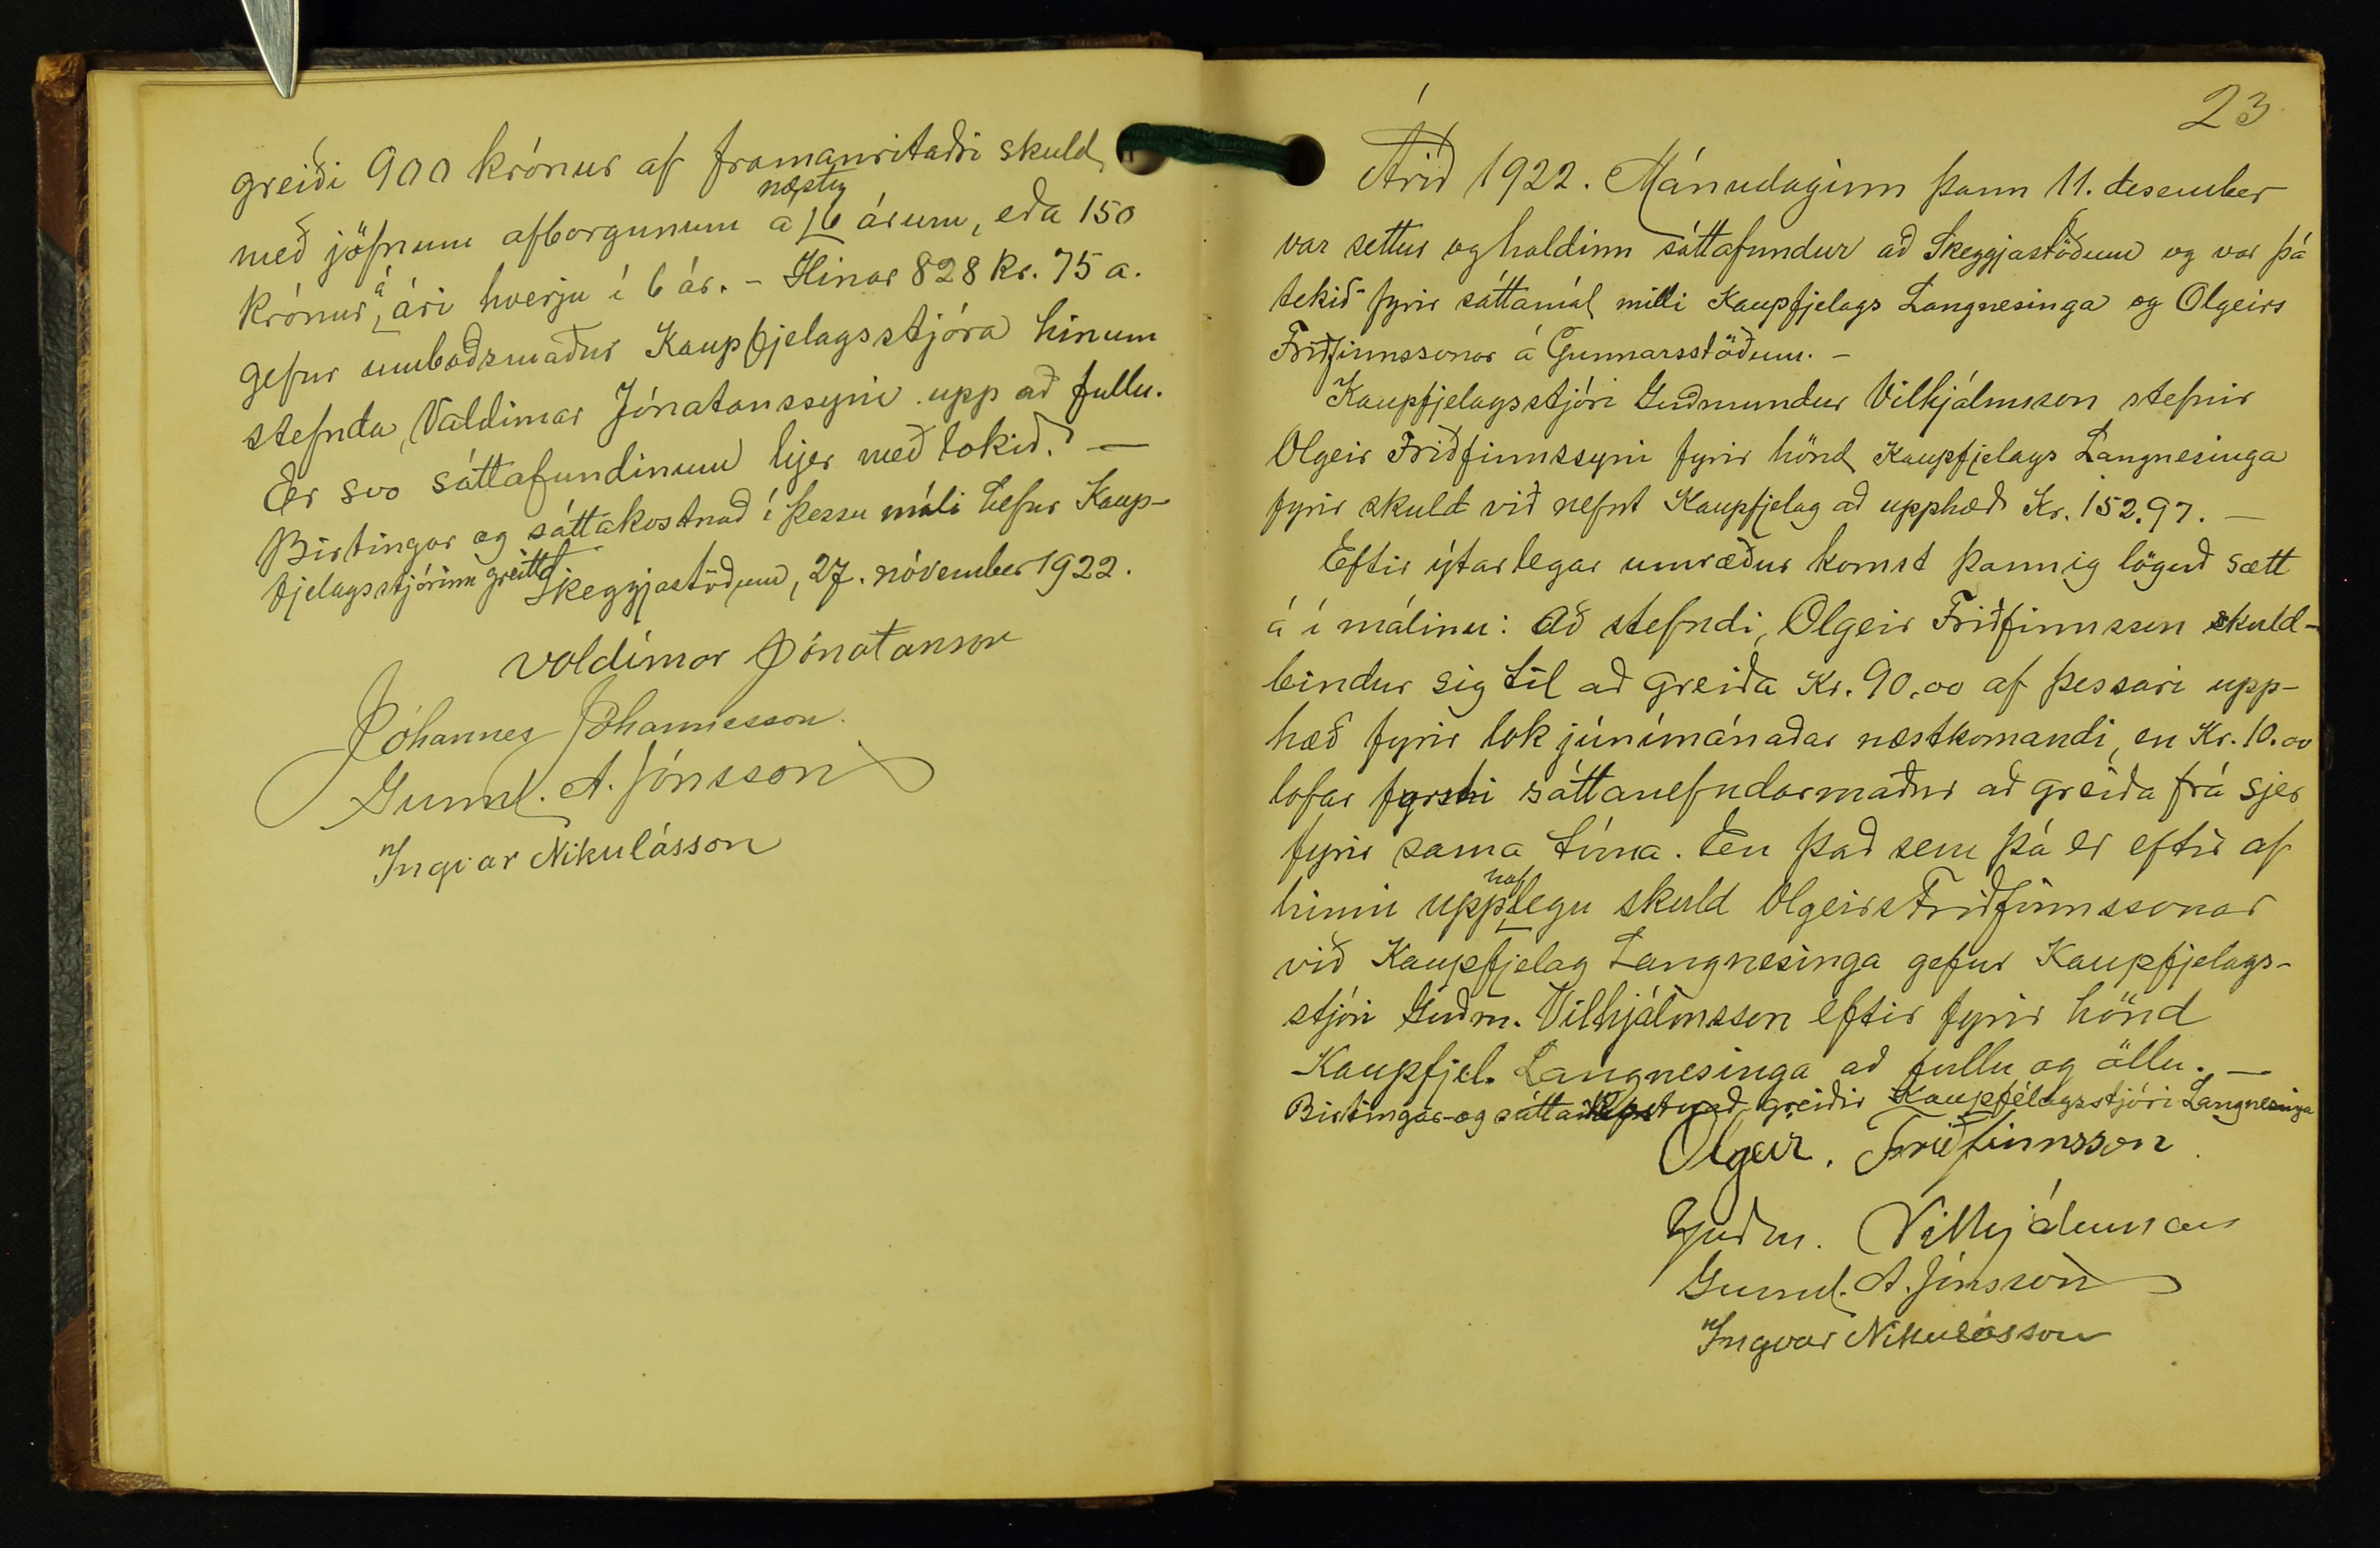 greiði 900 krónur af framanritaðri skuld
með jöfnum afborgunum á næstu 6 árum, eða 150
krónur á ári hverju í 6 ár. - Hinar 828 kr. 75 a.
gefur umboðsmaður Kaupfjelagsstjóra hinum
stefnda, Valdimar Jónatanssyni upp að fullu.
Er svo sáttafundinum hjer með lokið. —
Birtingar og sáttakostnað í þessu máli hefur Kaup-
fjelagsstjórinn greitt.
Skeggjastöðum, 27. nóvember 1922.
Valdimar Jónatansson
Jóhannes Jóhannesson.
Gunnl. A. Jónsson
Ingvar Nikulásson
23
Árið 1922. Mánudaginn þann 11. desember
var settur og haldinn sáttafundur að Skeggjastöðum og var þá
tekið fyrir sáttamál milli Kaupfjelags Langnesinga og Olgeirs
Friðfinnssonar á Gunnarsstöðum. -
Kaupfjelagsstjóri Guðmundur Vilhjálmsson stefnir
Olgeir Friðfinnssyni fyrir hönd Kaupfjelags Langnesinga
fyrir skuld við nefnt Kaupfjelag að upphæð Kr. 152.97. —
Eftir ýtarlegar umræður komst þannig löguð sætt
á í málinu: Að stefndi, Olgeir Friðfinnsson skuld-
bindur sig til að greiða Kr. 90,00 af þessari upp-
hæð fyrir lok júnímánaðar næstkomandi, en Kr. 10.00
lofar fyrsti sáttanefndarmaður að greiða frá sjer
fyrir sama tíma. En það sem þá er eftir af
hinni upphaflegu skuld Olgeirs Friðfinnssonar
við Kaupfjelag Langnesinga gefur Kaupfjelags-
stjóri Guðm. Vilhjálmsson eftir fyrir hönd
Kaupfjel. Langnesinga að fullu og öllu. —
Birtingar- og sáttakostnað greiðir Kaupfélagsstjóri Langnesinga
Olgeir. Friðfinnsson.
Guðm. Vilhjálmsson
Gunnl. A. Jónsson
Ingvar Nikulásson